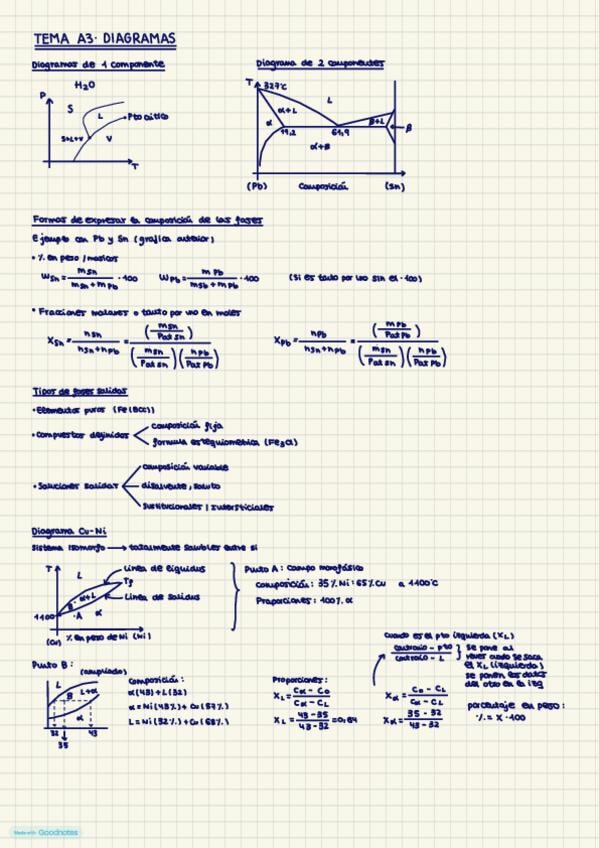 TEMA A3· DIAGRAMAS
Diagramas de 1 componente
H2O
P
S
L
Pto crítico
S+L+V
V
T
Diagrama de 2 componentes
T
327ºC
L
α+L
α
19,2
61,9
β+L
β
α+β
(Pb)
Composición
(Sn)
Formas de expresar la composición de las fases
Ejemplo con Pb y Sn (grafica anterior)
• % en peso / masicos
WSn = mSn / mSn + mPb · 100
WPb = mPb / mSb + mPb · 100
(Si es tanto por uno sin el · 100)
• Fracciones molares o tanto por uno en moles
XSn = nSn / nSn + nPb = (mSn / Pat Sn) / (mSn / Pat Sn)(nPb / Pat Pb)
XPb = nPb / nSn + nPb = (mPb / Pat Pb) / (mSn / Pat Sn)(nPb / Pat Pb)
Tipos de fases solidas
• Elementos puros (Fe(BCC))
• Compuestos definidos
composición fija
formula estequiométrica (Fe3Cl)
• Soluciones solidas
composición variable
disolvente, soluto
Sustitucionales / Intersticiales
Diagrama Cu-Ni
Sistema isomorfo → totalmente solubles entre si
T
L
Linea de liquidus
α+L
B
Linea de solidus
·A
α
1100
(Cu)
% en peso de Ni
(Ni)
Punto A: Campo monofásico
Composición: 35% Ni : 65% Cu a 1100ºC
Proporciones: 100% α
Punto B:
(ampliado)
L
B
L+α
α
32
43
35
Composición:
α(43)+L(32)
α = Ni(43%) + Cu(57%)
L = Ni(32%) + Cu(68%)
Proporciones:
XL = Cα - C0 / Cα - CL
XL = 43 - 35 / 43 - 32 = 0,64
Xα = C0 - CL / Cα - CL
Xα = 35 - 32 / 43 - 32
cuando es el pto izquierda (XL)
contrario - pto / contrario - L
se pone al
reves cuando se saca
el XL (izquierda)
se ponen los datos
del otro en la izq
porcentaje en peso:
% = X · 100
Made with Goodnotes